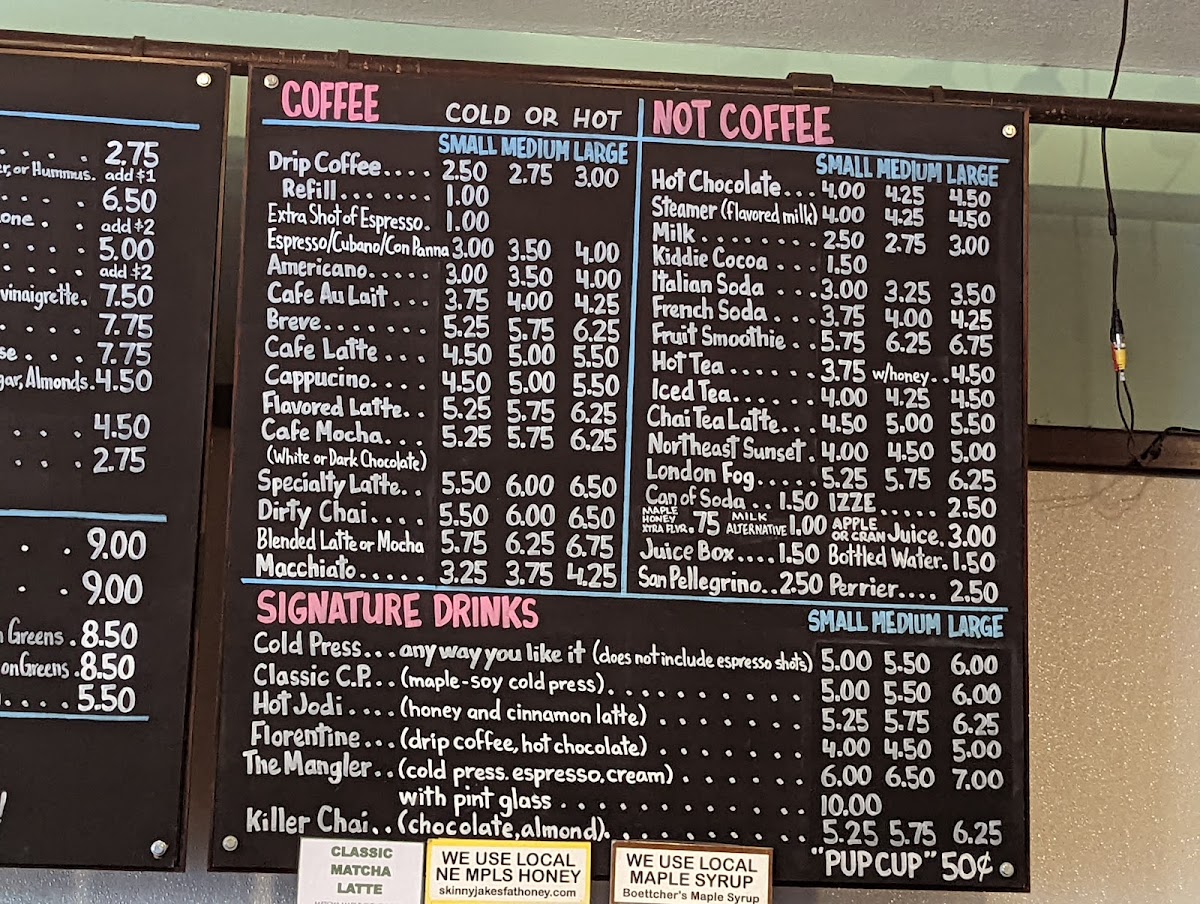 . . . . 2.75
er, or Hummus. add $1
. . . . . 6.50
one . . add $2
. . . . . 5.00
. . . . . add $2
vinaigrette. 7.50
. . . . . 7.75
se . . . 7.75
gar, Almonds. 4.50
. . . . 4.50
. . . . 2.75
. . . 9.00
. . . 9.00
n Greens . 8.50
on Greens . 8.50
. . . . 5.50
COFFEE COLD OR HOT
SMALL MEDIUM LARGE
Drip Coffee.... 2.50 2.75 3.00
Refill....... 1.00
Extra Shot of Espresso. 1.00
Espresso/Cubano/Con Panna 3.00 3.50 4.00
Americano...... 3.00 3.50 4.00
Cafe Au Lait ... 3.75 4.00 4.25
Breve....... 5.25 5.75 6.25
Cafe Latte .... 4.50 5.00 5.50
Cappucino.... 4.50 5.00 5.50
Flavored Latte.. 5.25 5.75 6.25
Cafe Mocha... 5.25 5.75 6.25
(White or Dark Chocolate)
Specialty Latte.. 5.50 6.00 6.50
Dirty Chai.... 5.50 6.00 6.50
Blended Latte or Mocha 5.75 6.25 6.75
Macchiato..... 3.25 3.75 4.25
NOT COFFEE
SMALL MEDIUM LARGE
Hot Chocolate... 4.00 4.25 4.50
Steamer (flavored milk) 4.00 4.25 4.50
Milk........ 2.50 2.75 3.00
Kiddie Cocoa ... 1.50
Italian Soda ... 3.00 3.25 3.50
French Soda... 3.75 4.00 4.25
Fruit Smoothie .. 5.75 6.25 6.75
Hot Tea...... 3.75 w/honey.. 4.50
Iced Tea...... 4.00 4.25 4.50
Chai Tea Latte... 4.50 5.00 5.50
Northeast Sunset . 4.00 4.50 5.00
London Fog..... 5.25 5.75 6.25
Can of Soda ... 1.50 IZZE..... 2.50
MAPLE HONEY XTRA FLVR. .75 MILK ALTERNATIVE 1.00 APPLE OR CRAN Juice. 3.00
Juice Box.... 1.50 Bottled Water. 1.50
San Pellegrino.. 2.50 Perrier.... 2.50
SIGNATURE DRINKS SMALL MEDIUM LARGE
Cold Press... any way you like it (does not include espresso shots) 5.00 5.50 6.00
Classic C.P... (maple-soy cold press).......... 5.00 5.50 6.00
Hot Jodi .... (honey and cinnamon latte) ....... 5.25 5.75 6.25
Florentine... (drip coffee, hot chocolate) ....... 4.00 4.50 5.00
The Mangler.. (cold press. espresso, cream) ...... 6.00 6.50 7.00
with pint glass .......... 10.00
Killer Chai.. (chocolate, almond)......... 5.25 5.75 6.25
"PUP CUP" 50¢
CLASSIC
MATCHA
LATTE
WE USE LOCAL
NE MPLS HONEY
skinnyjakesfathoney.com
WE USE LOCAL
MAPLE SYRUP
Boettcher's Maple Syrup